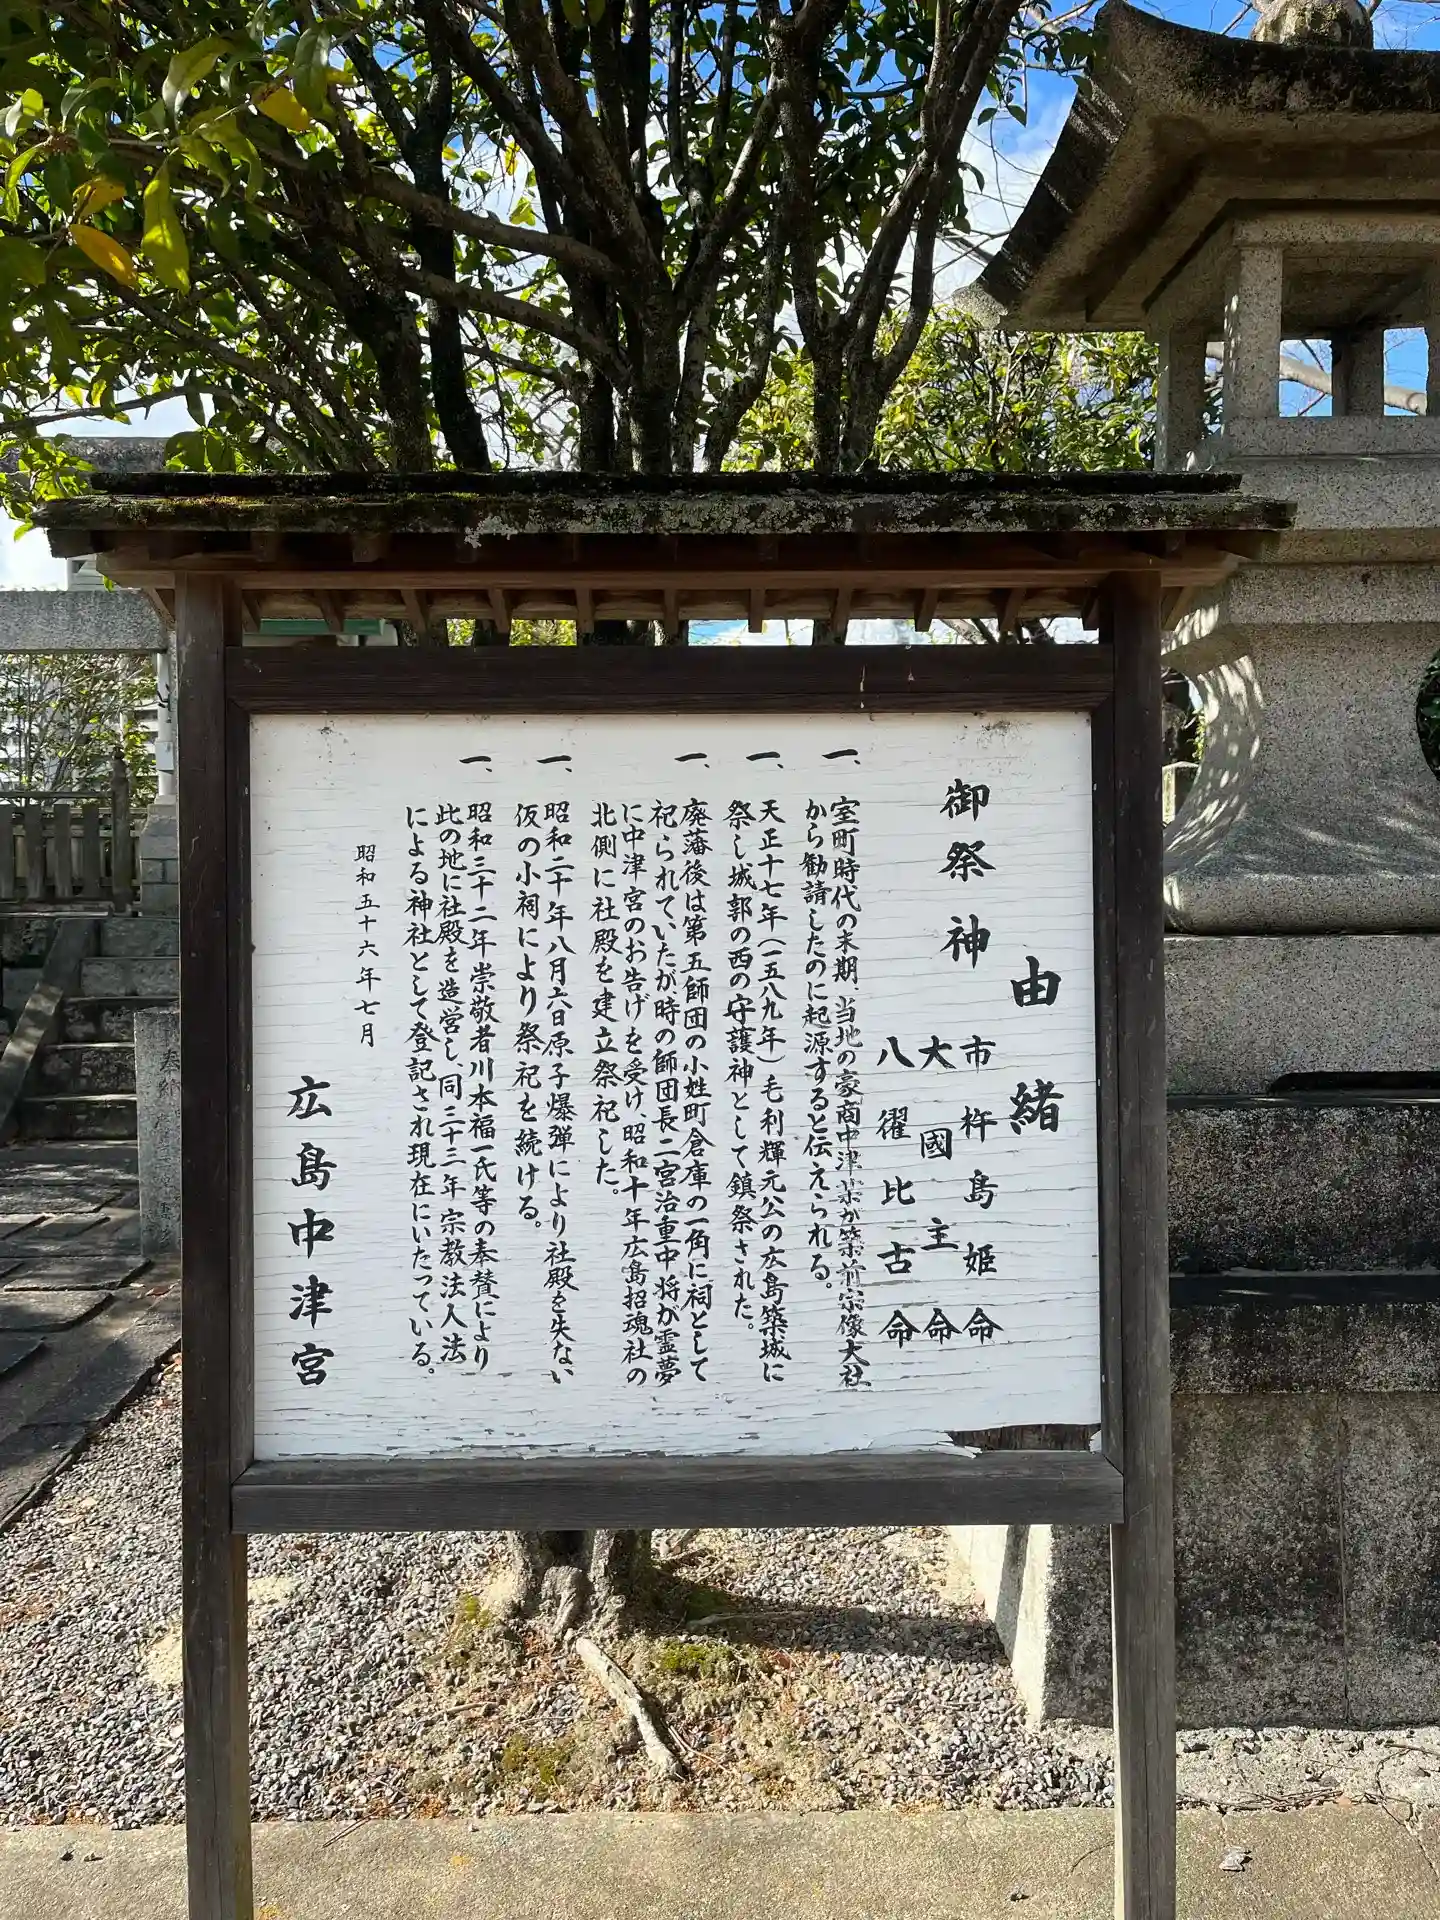 由緒
御祭神
市杵島姫命
大國主命
八擢比古命
一、室町時代の末期、当地の豪商中津某が築前宗像大社
から勧請したのに起源すると伝えられる。
一、天正十七年(一五八九年)毛利輝元公の広島築城に
祭し城郭の西の守護神として鎮祭された。
一、廃藩後は第五師団の小姓町倉庫の一角に祠として
祀られていたが、時の師団長二宮治重中将が霊夢
に中津宮のお告げを受け、昭和十年広島招魂社の
北側に社殿を建立祭祀した。
一、昭和二十年八月六日原子爆弾により社殿を失ない
仮の小祠により祭祀を続ける。
一、昭和三十二年崇敬者川本福一氏等の奉賛により
此の地に社殿を造営し、同三十三年宗教法人法
による神社として登記され現在にいたっている。
昭和五十六年七月
広島中津宮